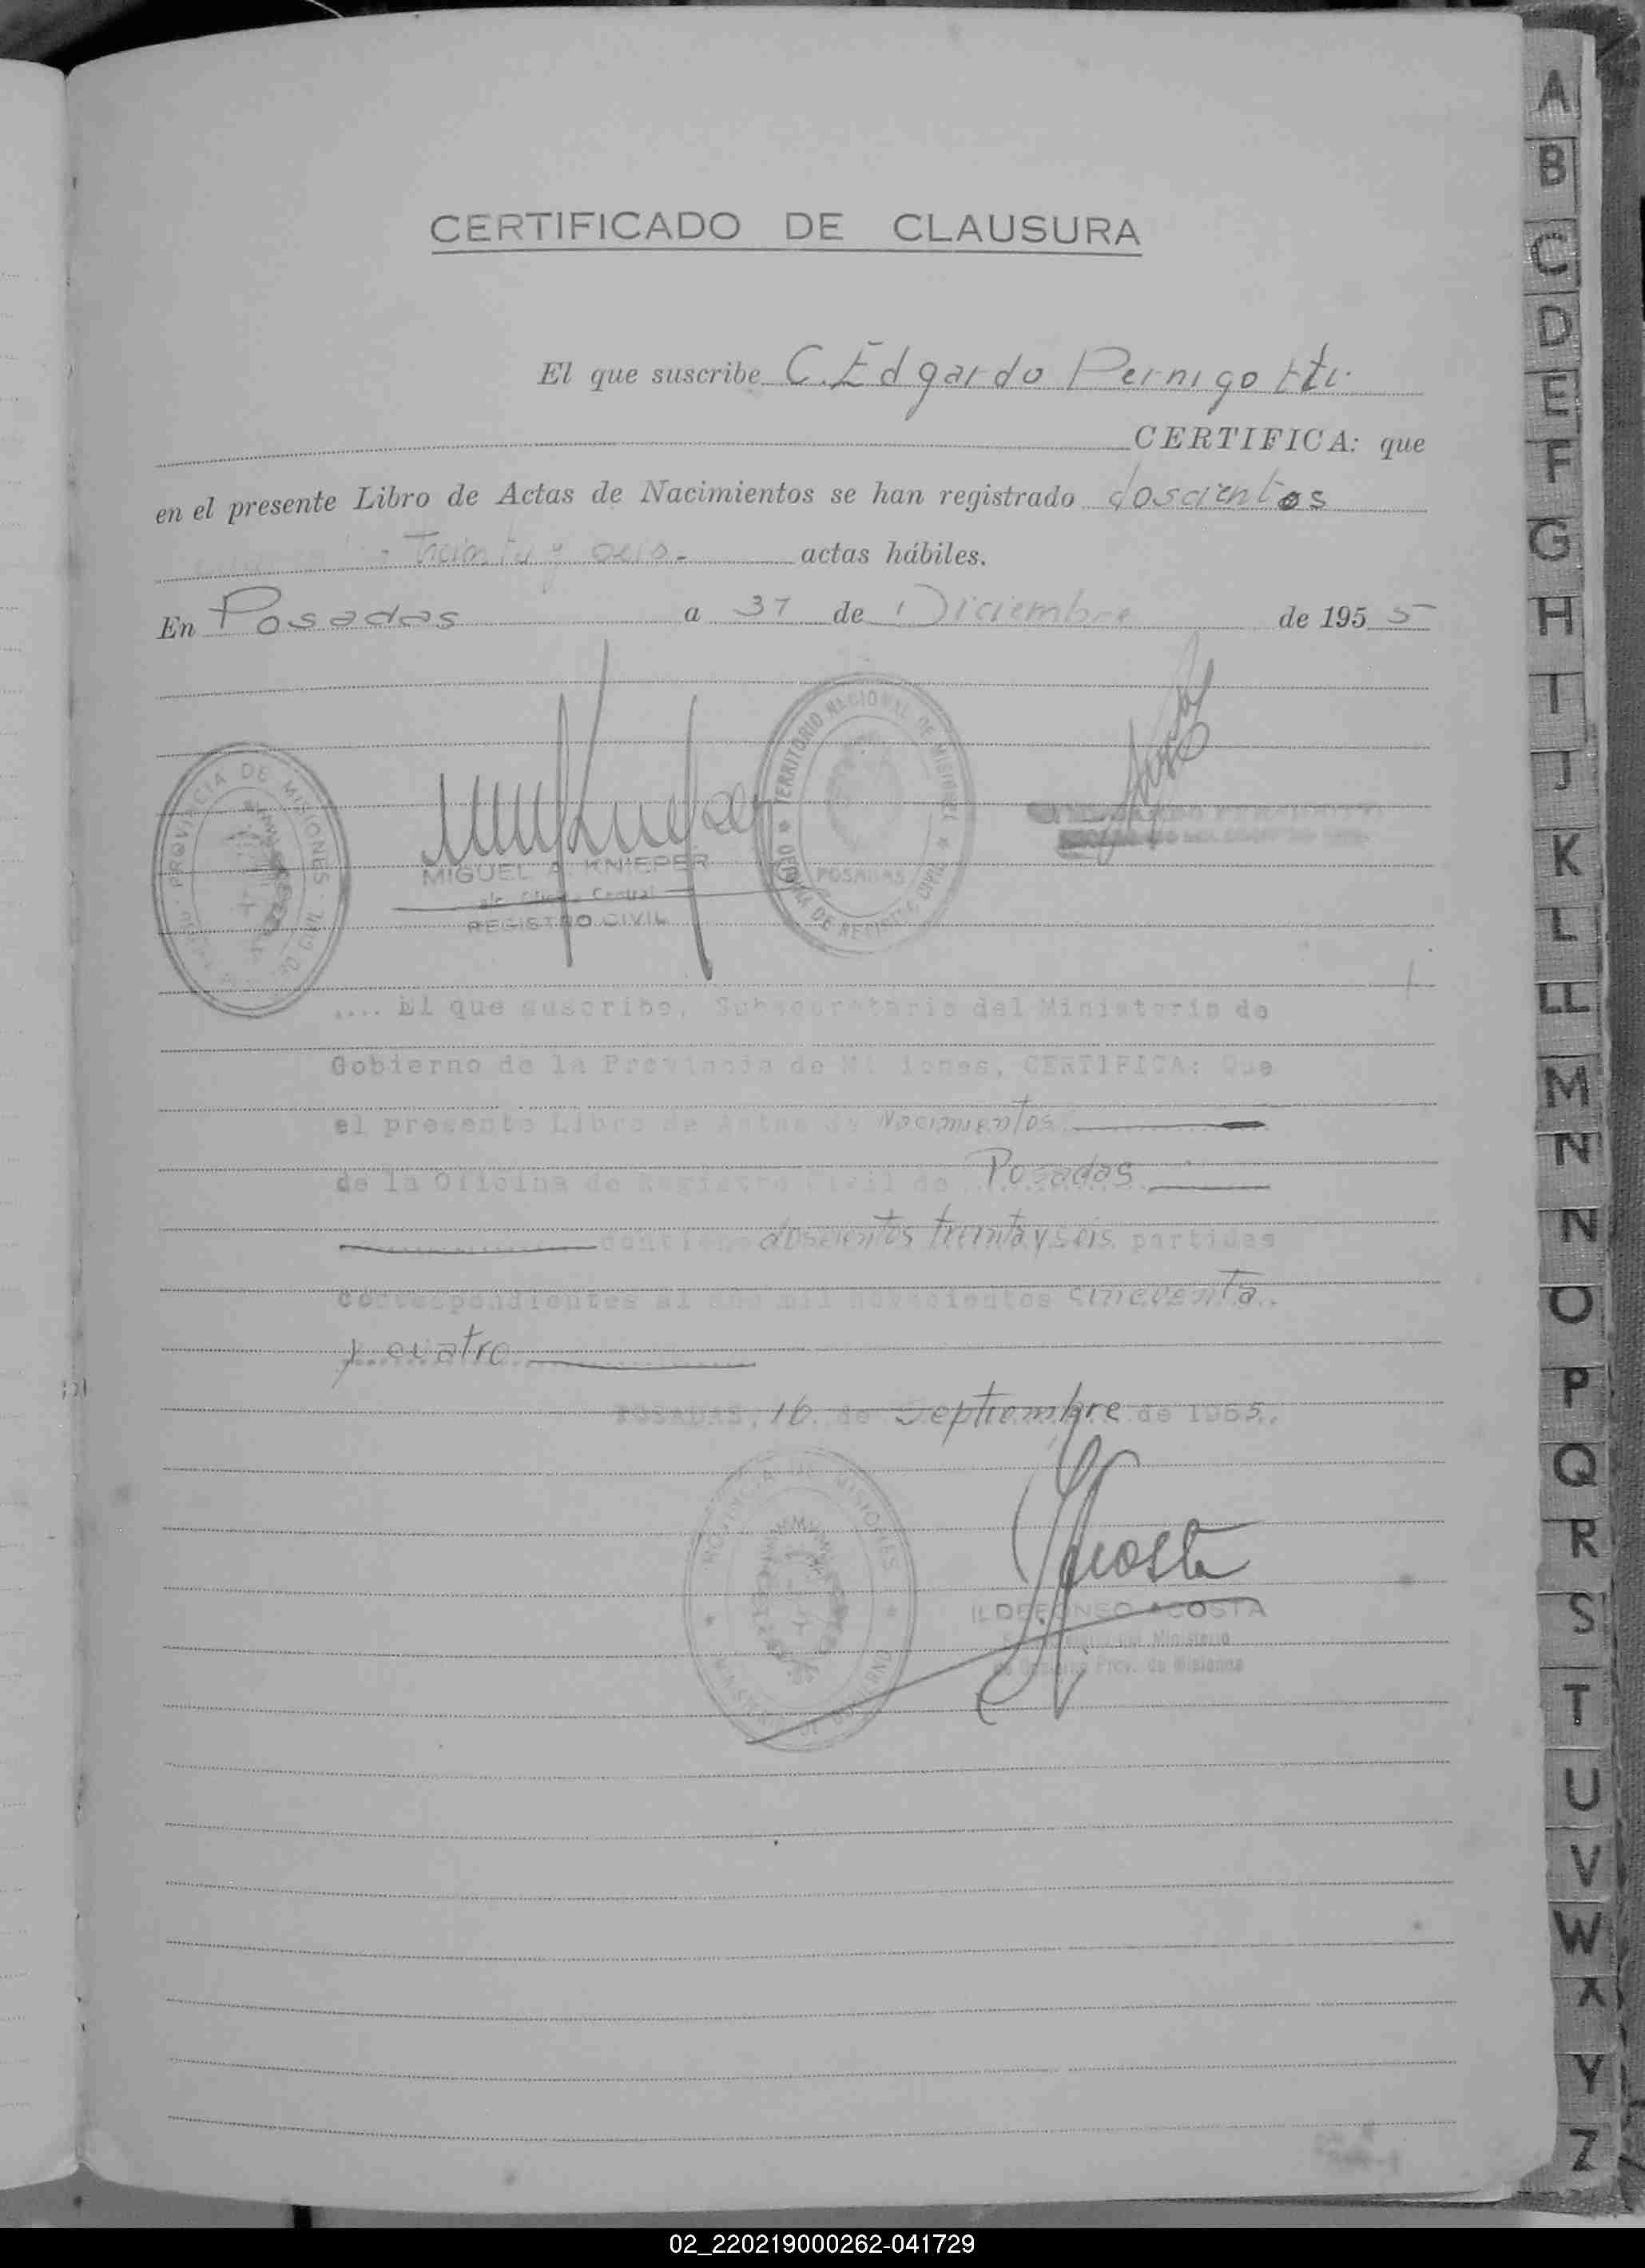 CERTIFICADO DE CLAUSURA
El que suscribe C. Edgardo Pernigotti
CERTIFICA: que
en el presente Libro de Actas de Nacimientos se han registrado doscientos
Treinta y seis - actas hábiles.
En Posadas a 31 de Diciembre de 1955
TERRITORIO NACIONAL DE MISIONES
POSADAS
OFICINA DE REGISTRO CIVIL
PROVINCIA DE MISIONES
MIGUEL A. KNIEPER
Central
REGISTRO CIVIL
.... El que suscribe, Subsecretario del Ministerio de
Gobierno de la Provincia de Misiones, CERTIFICA: Que
el presente Libro de Actas de Nacimientos
de la Oficina de Registro Civil de Posadas
contiene doscientos treinta y seis partidas
correspondientes al año mil novecientos cincuenta
y cuatro
POSADAS, 16 de Septiembre de 1955.
PROVINCIA DE MISIONES
MINISTERIO DE GOBIERNO
Acosta
ILDEFONSO ACOSTA
Ministerio
de Gobierno Prov. de Misiones
A
B
C
D
E
F
G
H
I
J
K
L
LL
M
N
N
O
P
Q
R
S
T
U
V
W
X
Y
Z
02_220219000262-041729